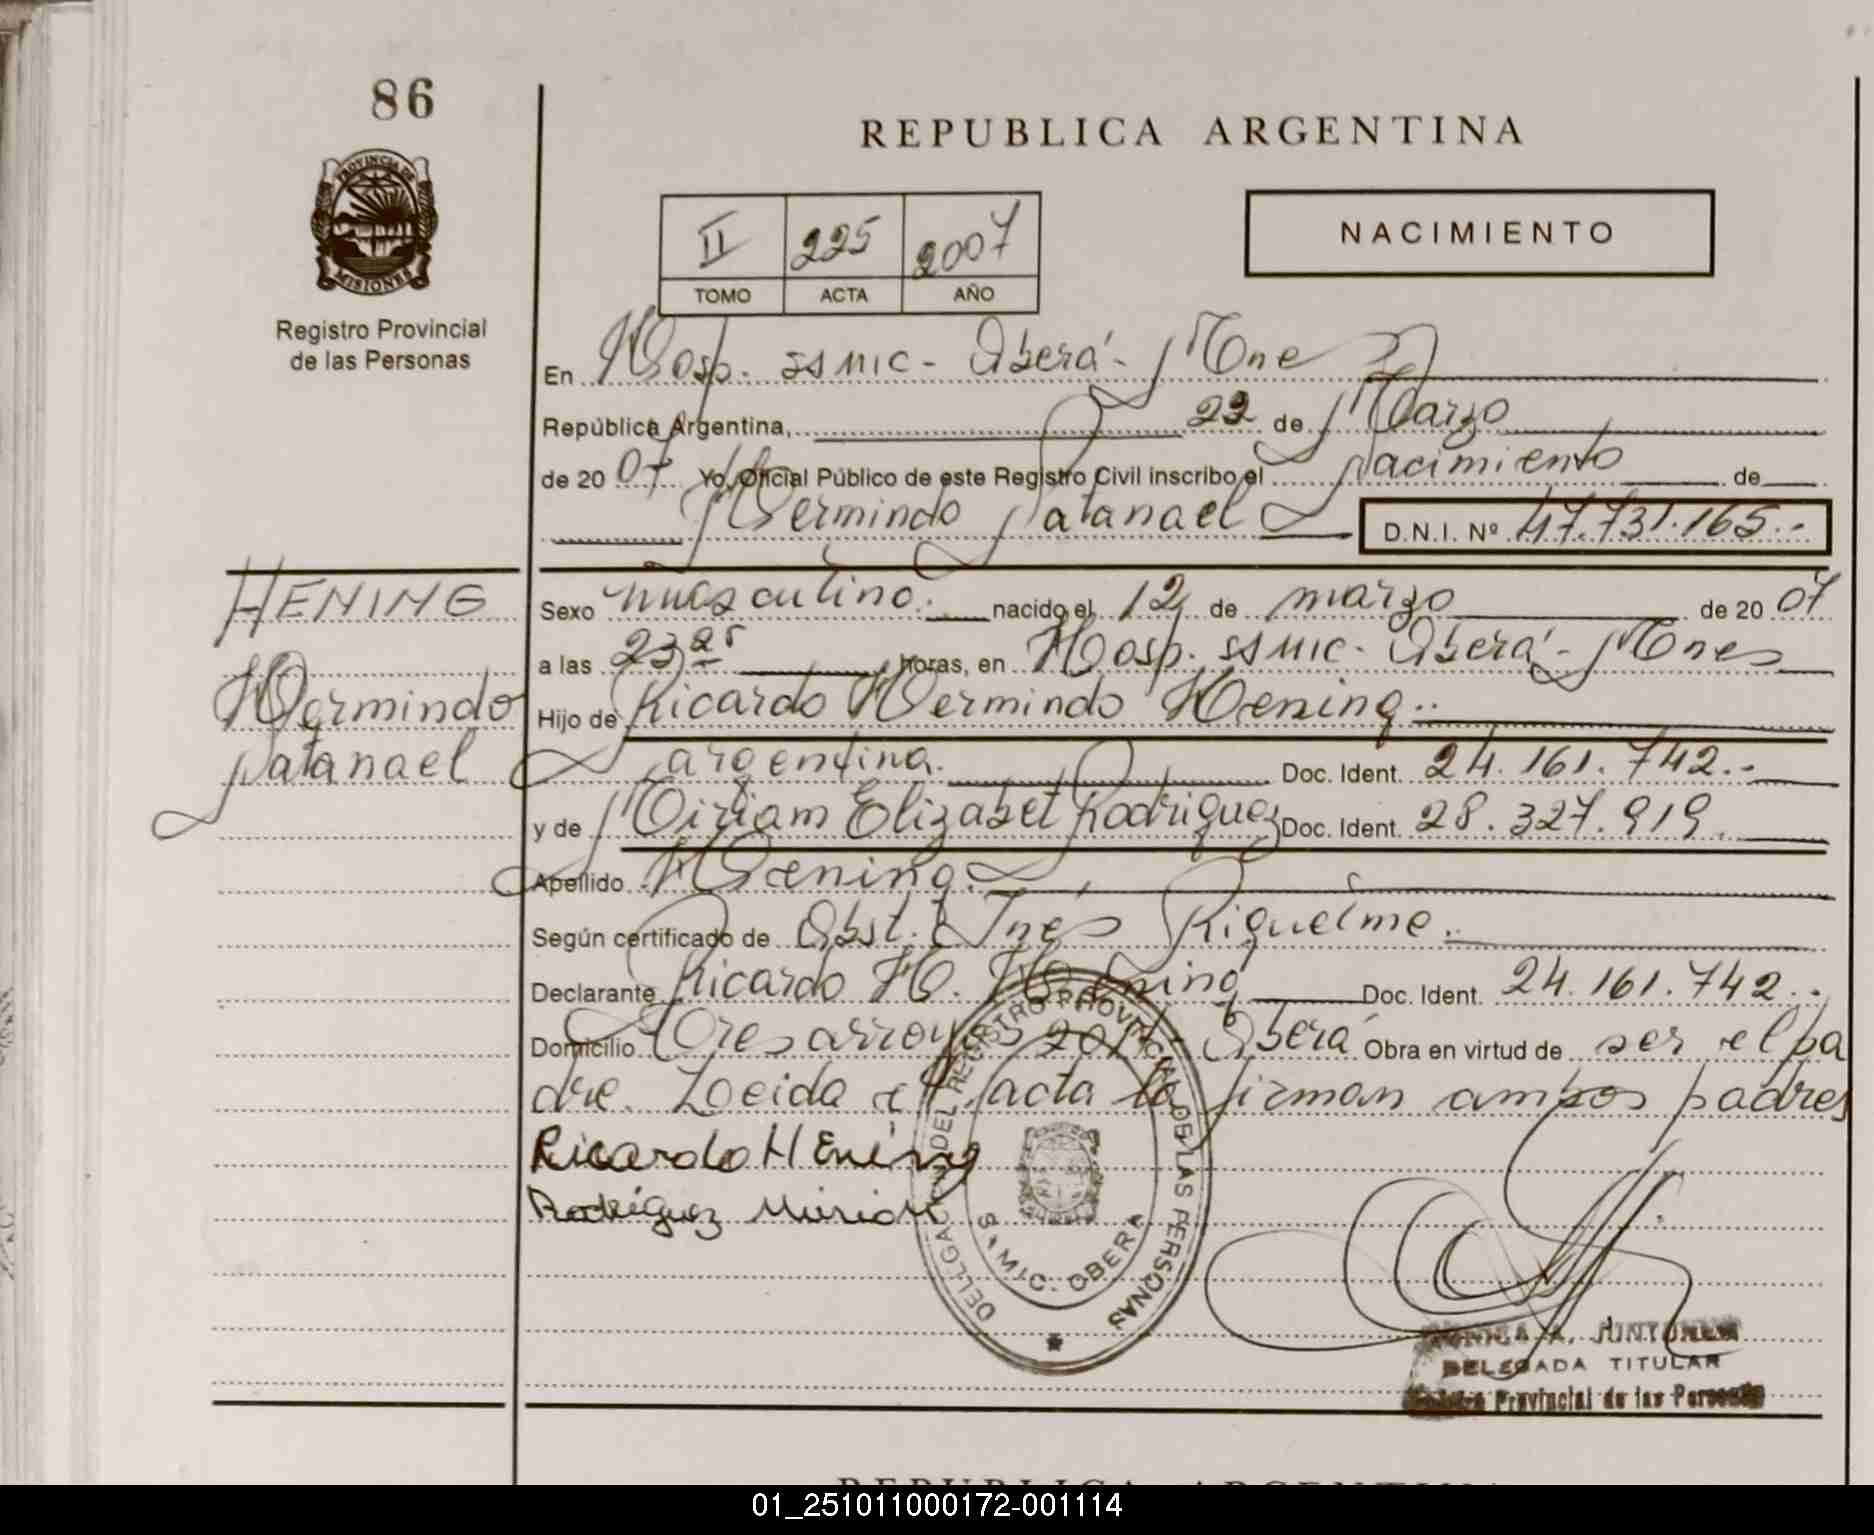 86
REPUBLICA ARGENTINA
PROVINCIA DE
MISIONES
Registro Provincial
de las Personas
II 225 2007
TOMO ACTA AÑO
NACIMIENTO
En Hosp. SAMIC - Oberá - Mnes
República Argentina, 22 de Marzo
de 2007 Yo, Oficial Público de este Registro Civil inscribo el Nacimiento de
Hermindo Natanael
D.N.I. Nº 47.731.165.-
HENING
Hermindo
Natanael
Sexo masculino. nacido el 12 de marzo de 2007
a las 23,25 horas, en Hosp. SAMIC - Oberá - Mnes
Hijo de Ricardo Hermindo Hening.-
argentina. Doc. Ident. 24.161.742.-
y de Miriam Elizabet Rodriguez Doc. Ident. 28.327.919.
Apellido Hening.
Según certificado de Obst. Inés Riquelme.
Declarante Ricardo H. Hening Doc. Ident. 24.161.742.-
Domicilio Tres arroyos Oberá Obra en virtud de ser el pa
dre. Leida el acta la firman ambos padres
Ricardo Hening
Rodriguez Miriam
DELEGACION DEL REGISTRO PROVINCIAL DE LAS PERSONAS
SAMIC. OBERA
DELEGADA TITULAR
Registro Provincial de las Personas
REPUBLICA ARGENTINA
01_251011000172-001114